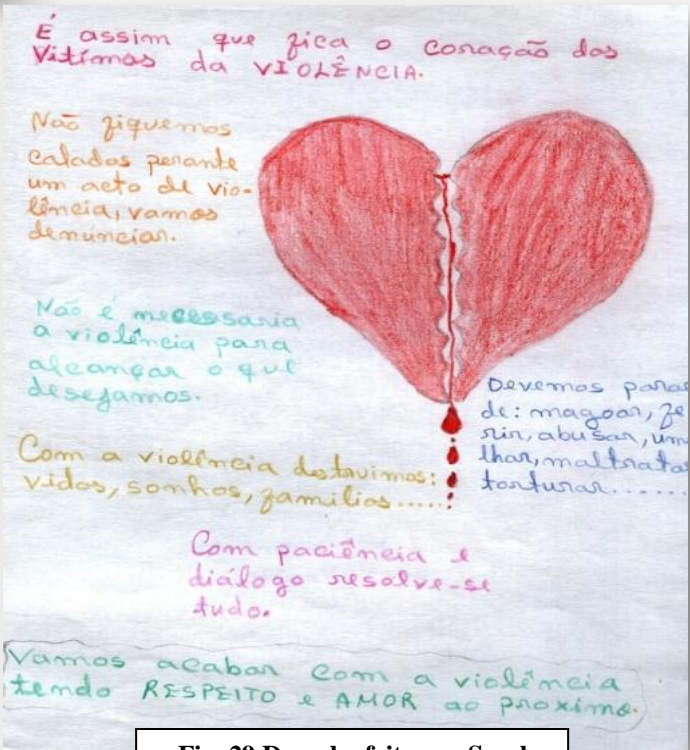 É assim que fica o coração das
Vitimas da VIOLÊNCIA.
Não fiquemos
calados perante
um acto de vio-
lência, vamos
denúnciar.
Não é necessaria
a violência para
alcançar o que
desejamos.
Devemos parar
de: magoar, fe
rir, abusar, um
lhar, maltratar
torturar......
Com a violência destruimos:
vidas, sonhos, familias.....
Com paciência e
diálogo resolve-se
tudo.
Vamos acabar com a violência
tendo RESPEITO e AMOR ao proximo.